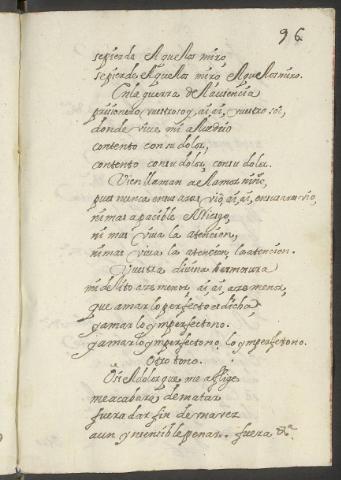 96
se pierda Aquellos miro,
se pierde Aquellos miro, Aquellos miro.
En la guerra de la ausencia
prisionero vuestro soy, ai, ai, vuestro soi,
donde vive mi Aluedrio
contento con su dolor,
contento con su dolor, con su dolor.
Vien llaman a el Amor niño,
pues nunca en sus aras vio, ai, ai, en sus aras vio,
ni mas apacible el riesgo,
ni mas viva la atencion,
ni mas viva la atencion, la atencion.
Vuestra divina hermosura
mi delito aze menor, ai, ai, aze menor,
que amar lo perfecto es dicha
y amar lo ymperfecto no.
y amar lo ymperfecto no, lo ymperfecto no.
Otro tono.
O si el dolor que me aflige
me acabara de matar
fuera dar fin de una vez
a un ynsensible penar. fuera &ª